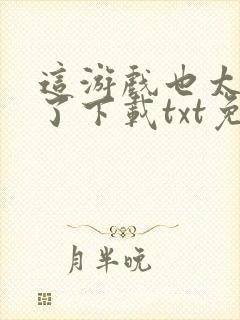 這游戲也太
了下載txt免
月半晚